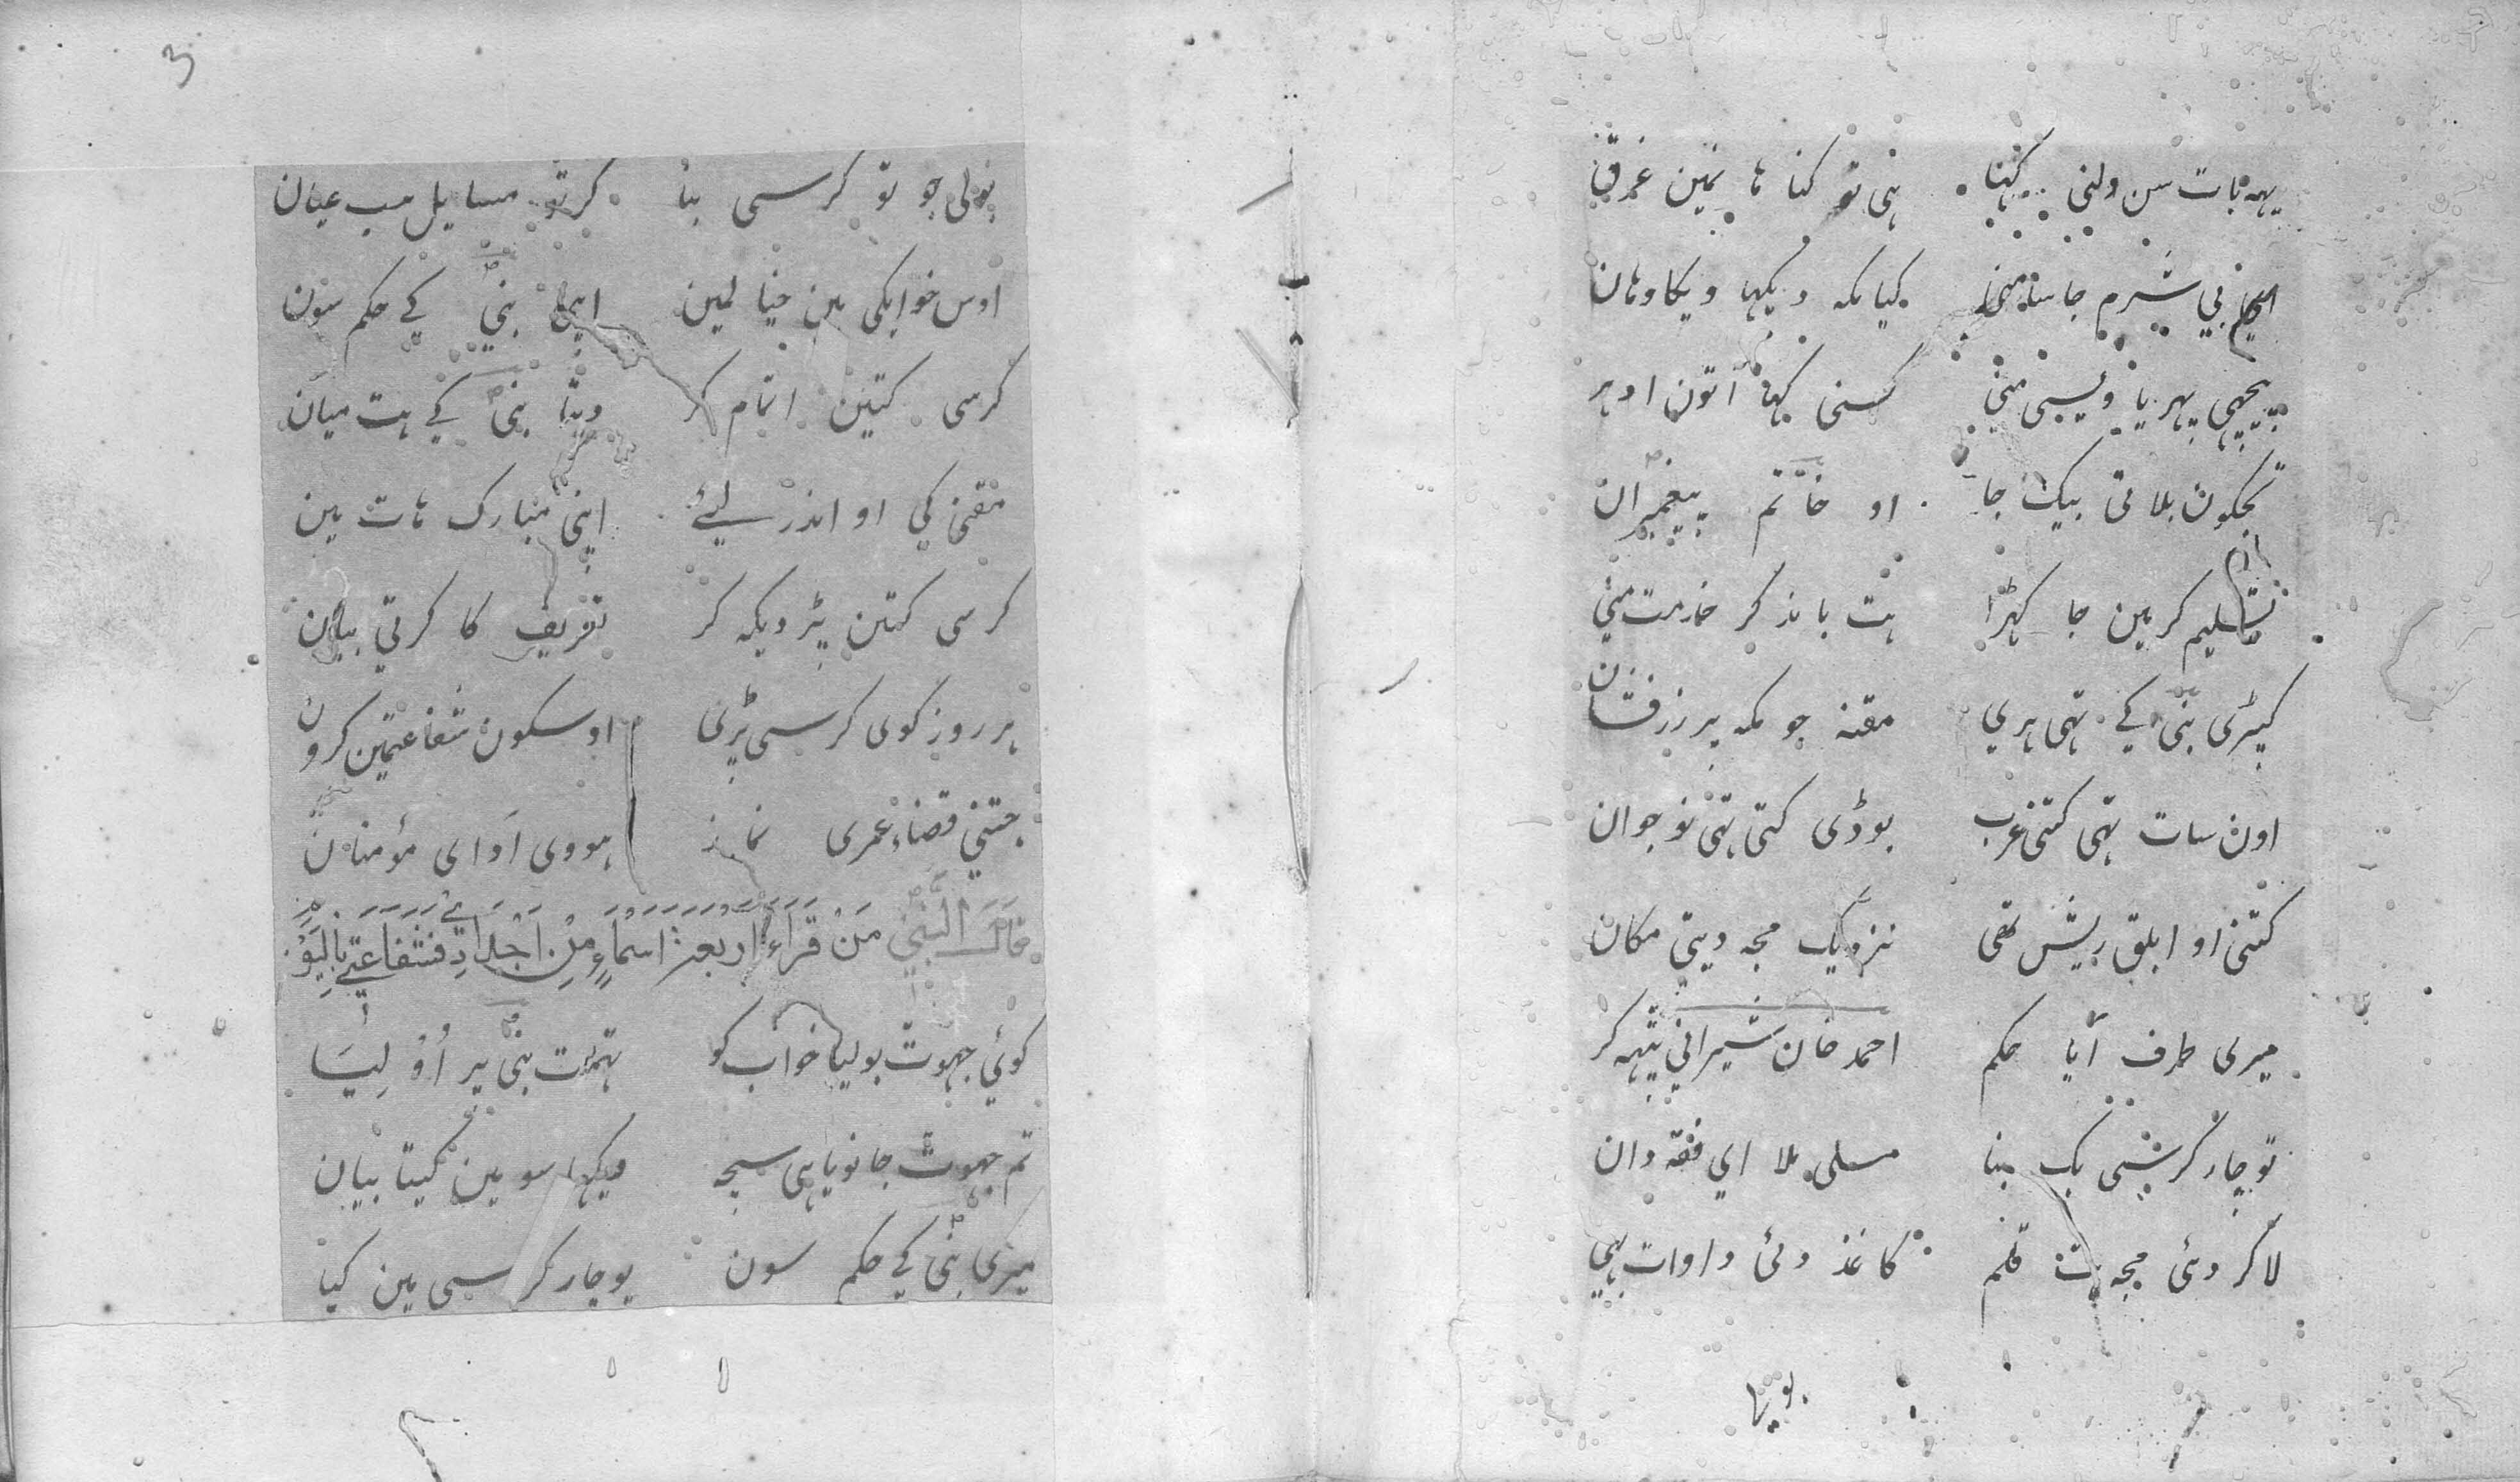 یہہ بات سن ولنی کہنا ہی تو کنا ہا نمین غرق
بی شرم جا سامنی کیا مکہ دیکہا ویکا وہان
پیچہی پہریا ویسی منی کسنی کہا آتون ادہر
تجکون بلاتی بیک جا او خاتم پیغمبران
تسلیم کر مین جا کہڑا ہت باند کر خدمت منی
کپڑی نبی کے تہی ہری مقنہ جو مکہ پر زرفشان
اون سات تہی کتی عرب بوڈی کتی تہی نوجوان
کتنی او ابلق ریش تھی نزدیک مجہ دیتی مکان
میری طرف آیا حکم احمد خان شیرانی تہہ کر
تو چار کرشی یک بنا مسلی ملا ای فقہ دان
لا کر دئی مجہ ہت قلم کاغذ دئی داوات بہی
3
بولی جو تو کرسی بنا کر تو مسایل سب عیان
اوس خوابکی مین خیالمین نبی کے حکم سون
کرسی کتین اتمام کر دیتا نبی کے ہت میان
مقنی کی او اندر لیئے اپنی مبارک ہات مین
کرسی کتین پڑ دیکہ کر تعریف کا کرتی بیان
ہر روز کوی کرسی پڑی اوسکون شفاعتمین کرون
جتنی قضاء عمری نماز ہووی ادا ای مؤمنان
قال النبی من قراء اربعۃ اسماء من اجدادی فشفاعتی بالیوم
کوئی جہوت بولیا خواب کو تہمت نبی پر او لیا
تم جہوٹ جانو یا ہی سچہ دیکہا سو مین کیتا بیان
میری نبی کے حکم سون یو چار کرسی مین کیا